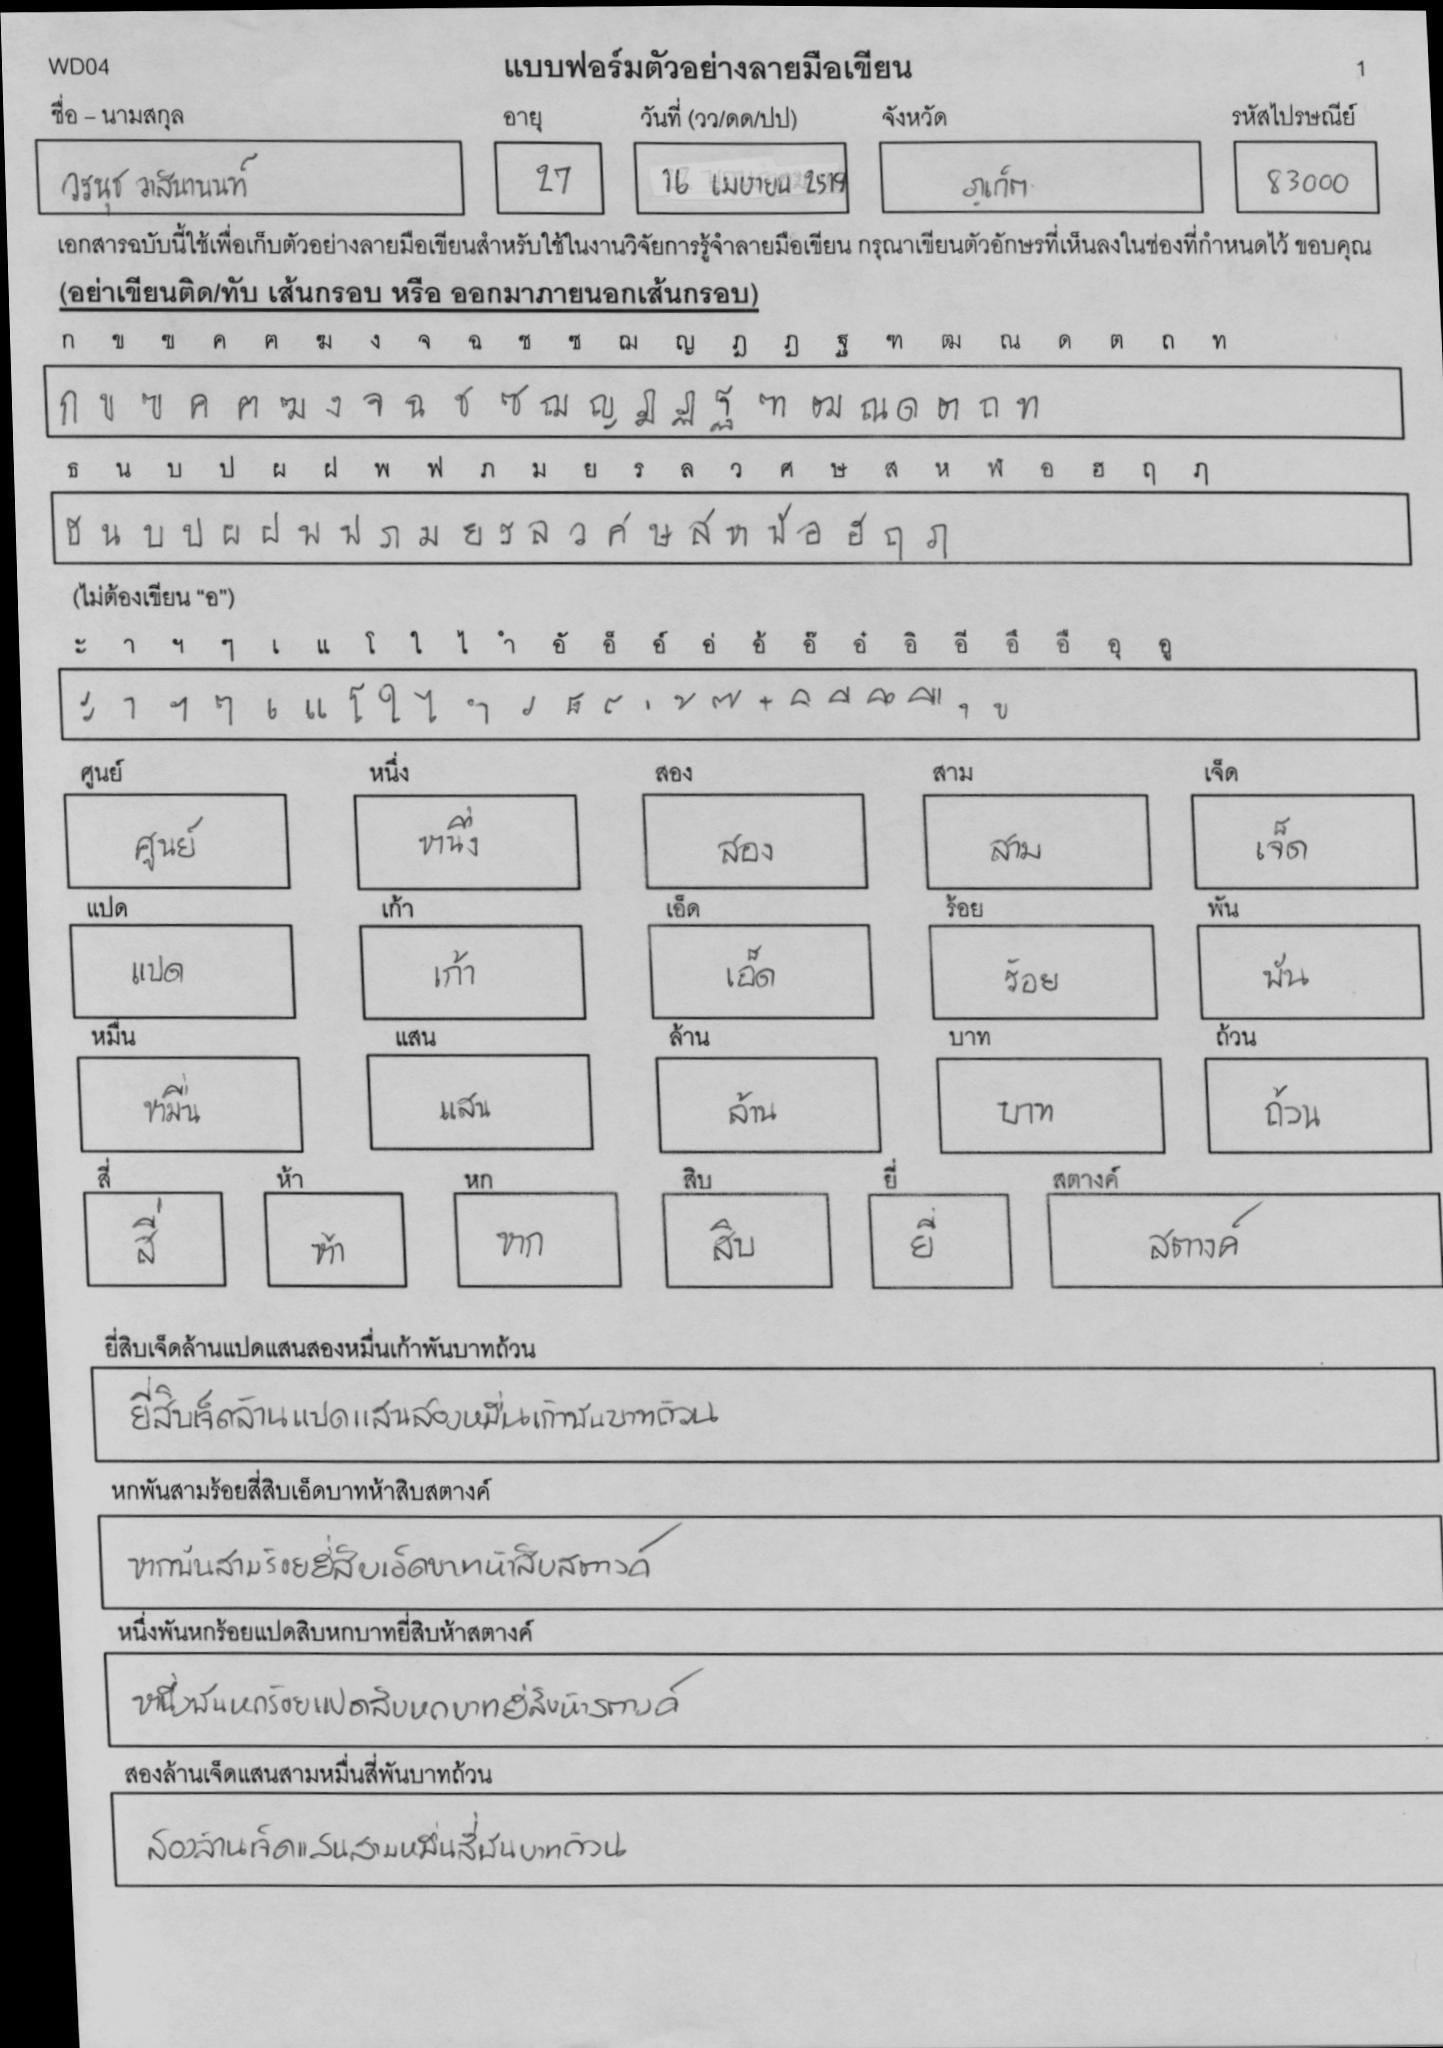 WD04 แบบฟอร์มตัวอย่างลายมือเขียน 1
ชื่อ – นามสกุล อายุ วันที่ (วว/ดด/ปป) จังหวัด รหัสไปรษณีย์
วรนุช วาสินานนท์ 27 16 เมษายน 2519 ภูเก็ต 83000
เอกสารฉบับนี้ใช้เพื่อเก็บตัวอย่างลายมือเขียนสำหรับใช้ในงานวิจัยการรู้จำลายมือเขียน กรุณาเขียนตัวอักษรที่เห็นลงในช่องที่กำหนดไว้ ขอบคุณ
(อย่าเขียนติด/ทับ เส้นกรอบ หรือ ออกมาภายนอกเส้นกรอบ)
ก ข ฃ ค ฅ ฆ ง จ ฉ ช ซ ฌ ญ ฎ ฏ ฐ ฑ ฒ ณ ด ต ถ ท
ก ข ฃ ค ฅ ฆ ง จ ฉ ช ซ ฌ ญ ฎ ฏ ฐ ฑ ฒ ณ ด ต ถ ท
ธ น บ ป ผ ฝ พ ฟ ภ ม ย ร ล ว ศ ษ ส ห ฬ อ ฮ ฤ ฦ
ธ น บ ป ผ ฝ พ ฟ ภ ม ย ร ล ว ศ ษ ส ห ฬ อ ฮ ฤ ฦ
(ไม่ต้องเขียน “อ”)
ะ า ฯ ๆ เ แ โ ใ ไ ำ อั อ็ อ์ อ่ อ้ อ๊ อ๋ อิ อี อึ อื อุ อู
ะ า ฯ ๆ เ แ โ ใ ไ ำ ั ็ ์ ่ ้ ๊ ๋ ิ ี ึ ื ุ ู
ศูนย์ หนึ่ง สอง สาม เจ็ด
ศูนย์ หนึ่ง สอง สาม เจ็ด
แปด เก้า เอ็ด ร้อย พัน
แปด เก้า เอ็ด ร้อย พัน
หมื่น แสน ล้าน บาท ถ้วน
หมื่น แสน ล้าน บาท ถ้วน
สี่ ห้า หก สิบ ยี่ สตางค์
สี่ ห้า หก สิบ ยี่ สตางค์
ยี่สิบเจ็ดล้านแปดแสนสองหมื่นเก้าพันบาทถ้วน
ยี่สิบเจ็ดล้านแปดแสนสองหมื่นเก้าพันบาทถ้วน
หกพันสามร้อยสี่สิบเอ็ดบาทห้าสิบสตางค์
หกพันสามร้อยยี่สิบเอ็ดบาทห้าสิบสตางค์
หนึ่งพันหกร้อยแปดสิบหกบาทยี่สิบห้าสตางค์
หนึ่งพันหกร้อยแปดสิบหกบาทยี่สิบห้าสตางค์
สองล้านเจ็ดแสนสามหมื่นสี่พันบาทถ้วน
สองล้านเจ็ดแสนสามหมื่นสี่พันบาทถ้วน